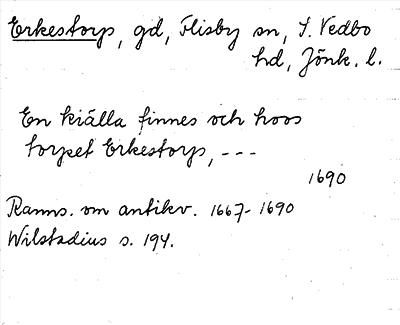 Erkestorp, gd, Flisby sn, S. Vedbo
hd, Jönk. l.
En kiälla finnes och hoos
torpet Erkestorp, ---
1690
Ranns. om antikv. 1667-1690
Wilstadius s. 194.